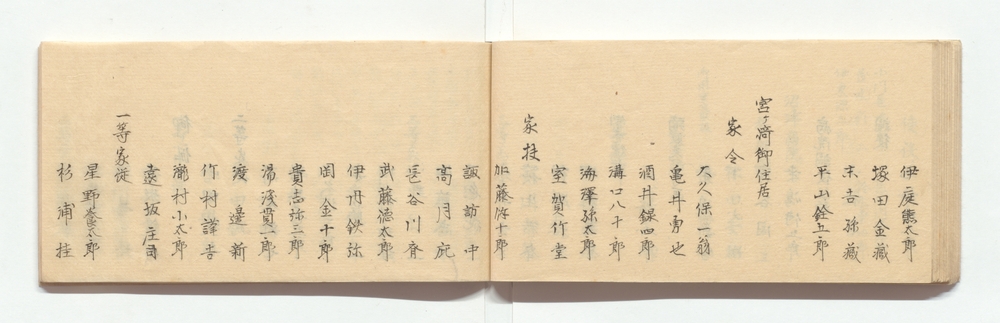 伊庭熊太郎
塚田金蔵
末吉孫蔵
平山銓五郎
宮ヶ崎御住居
家令
大久保一翁
亀井勇也
酒井録四郎
溝口八十郎
海澤孫太郎
室賀竹堂
家扶
加藤弥十郎
諏訪 中
高月
長谷川斉
武藤徳太郎
伊丹鉄弥
岡金十郎
貴志弥三郎
湯浅貫一郎
渡邊新
竹村謹吉
瀧村小太郎
遠坂庄司
一等家従
星野 太郎
杉浦